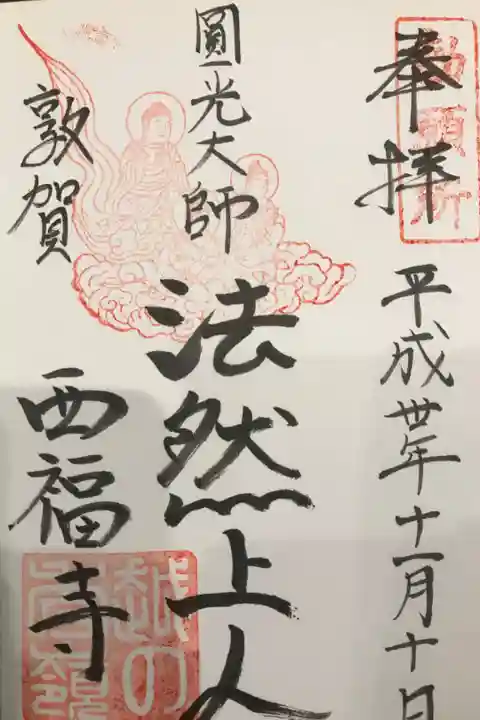 奉拝
勅願所
平成卅年十一月十日
圓光大師
法然上人
敦賀
西福寺
越の